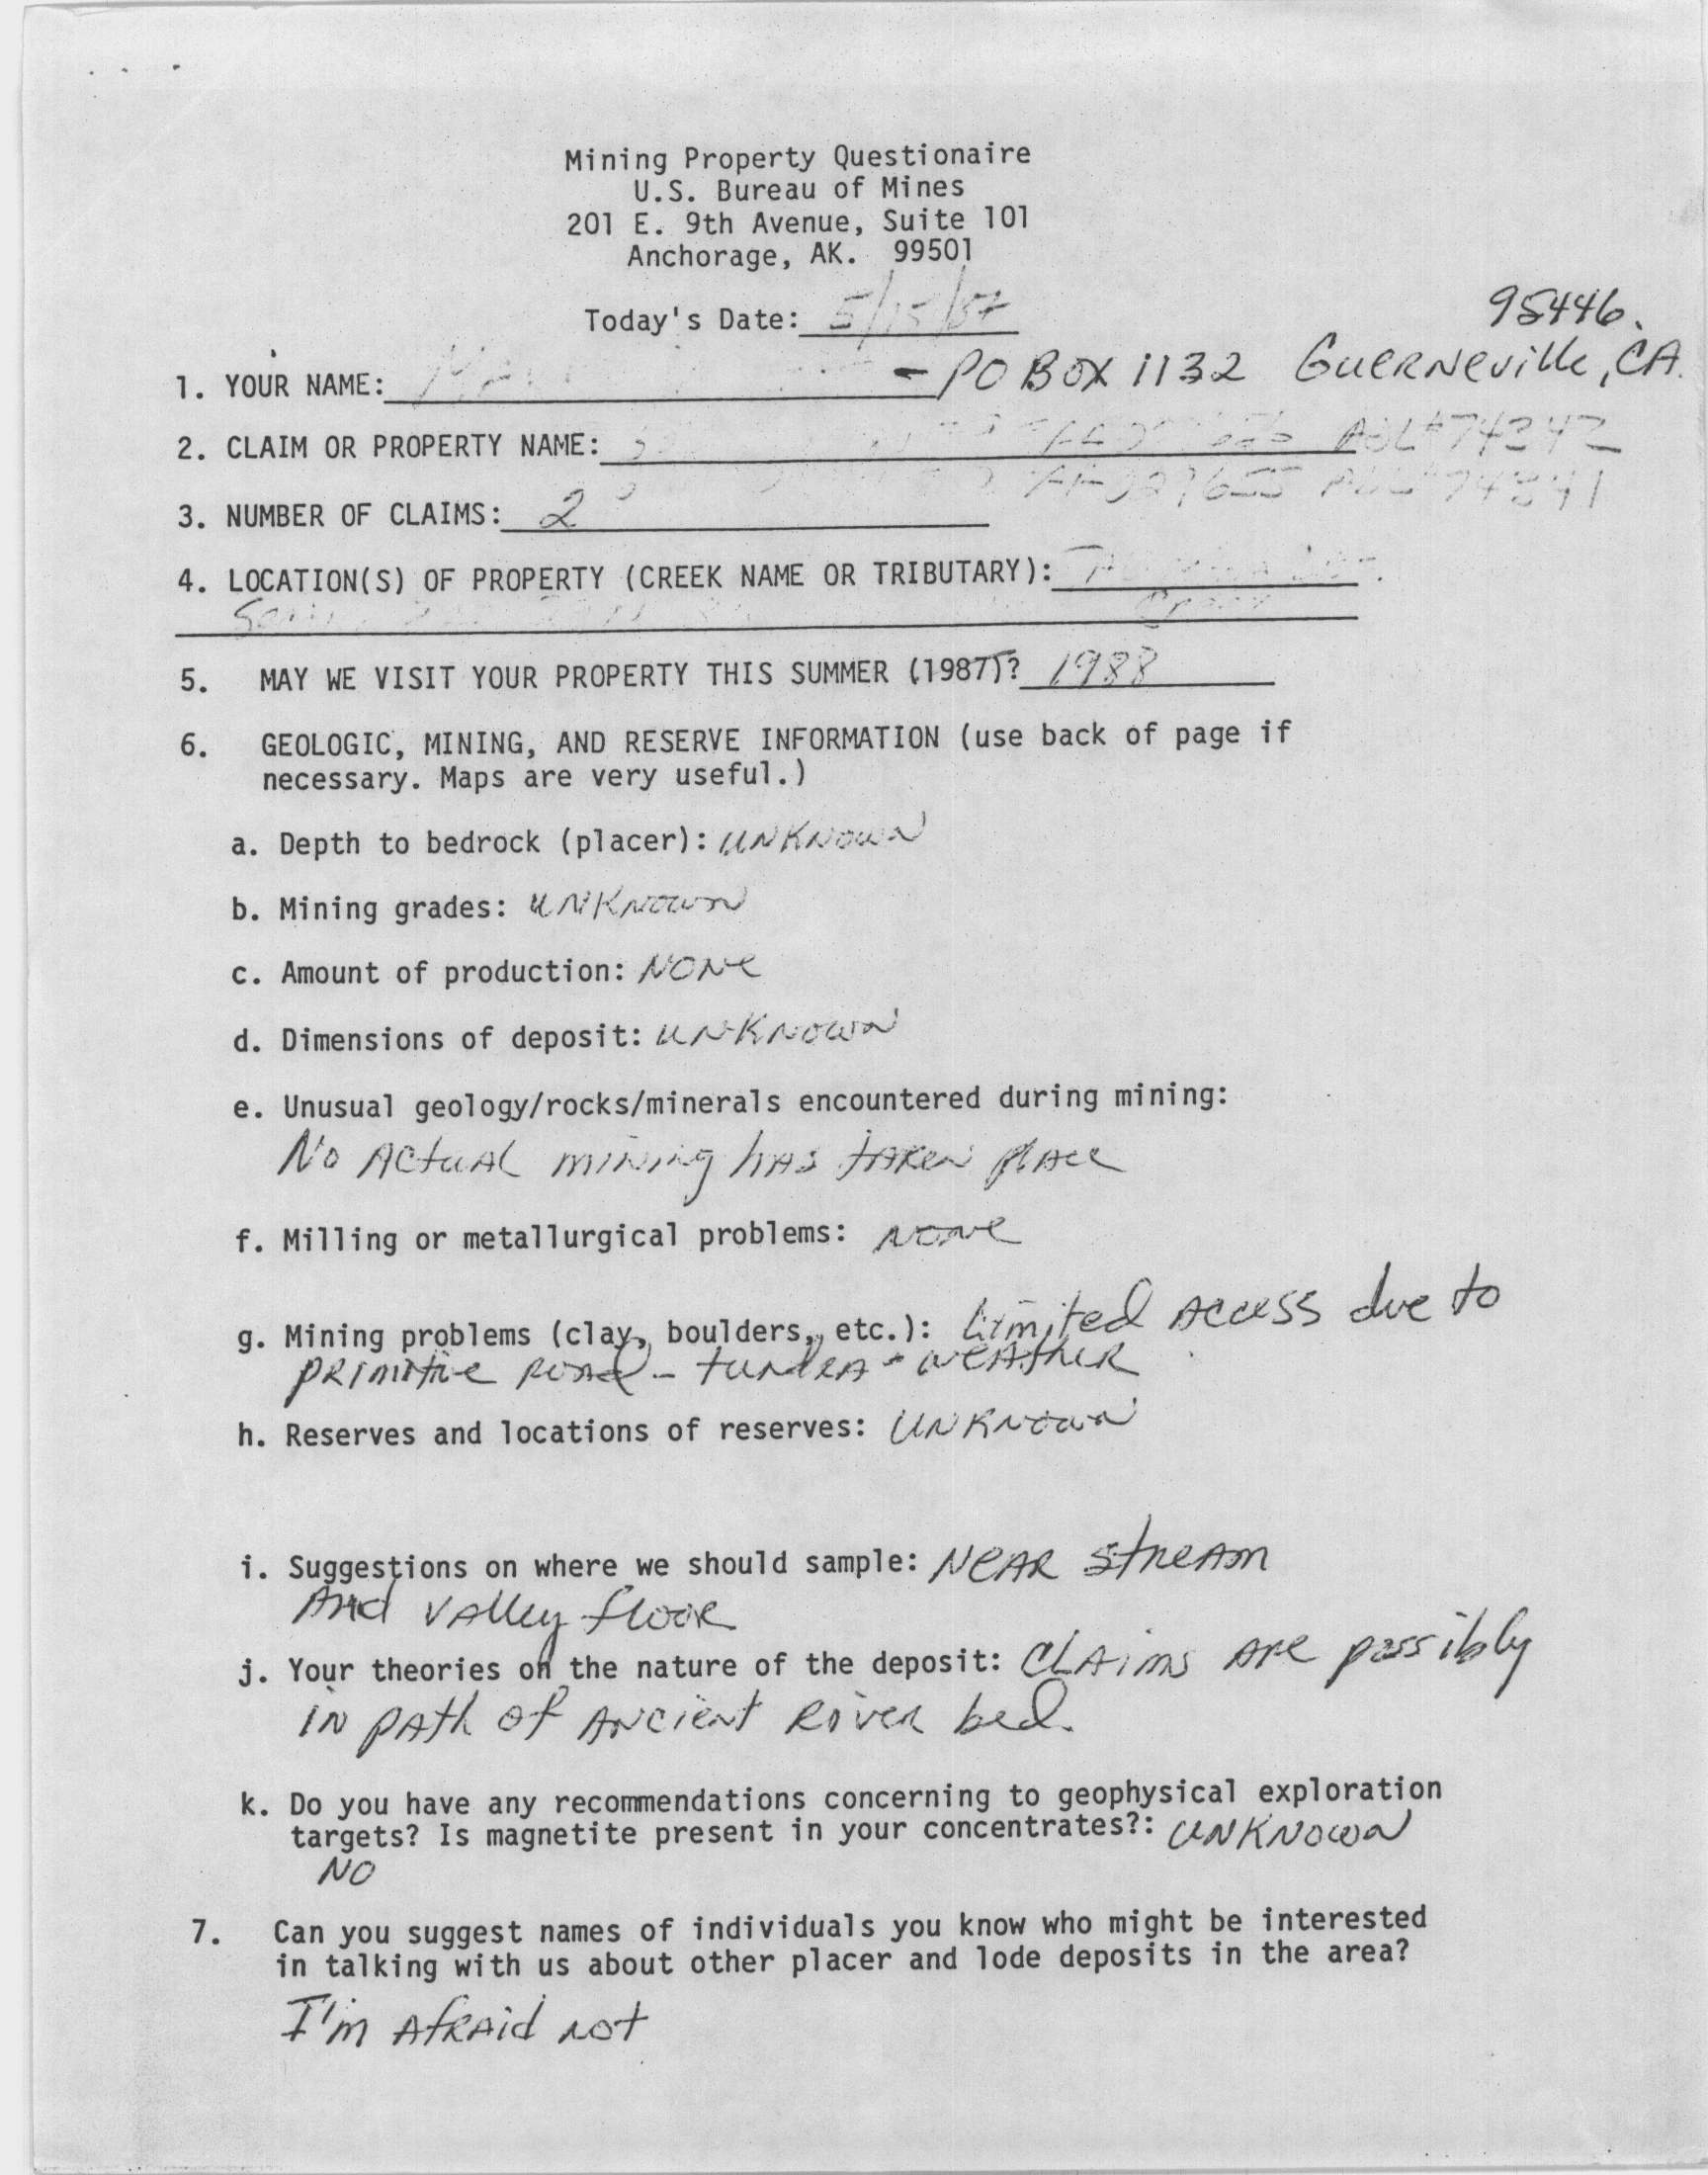 Mining Property Questionaire
U.S. Bureau of Mines
201 E. 9th Avenue, Suite 101
Anchorage, AK. 99501
95446.
Today's Date: 5/15/87
1. YOUR NAME: - PO BOX 1132 Guerneville, CA.
2. CLAIM OR PROPERTY NAME: ADL#74342
3. NUMBER OF CLAIMS: 2
4. LOCATION(S) OF PROPERTY (CREEK NAME OR TRIBUTARY):
5. MAY WE VISIT YOUR PROPERTY THIS SUMMER (1987)? 1988
6. GEOLOGIC, MINING, AND RESERVE INFORMATION (use back of page if
necessary. Maps are very useful.)
a. Depth to bedrock (placer): UNKNOWN
b. Mining grades: UNKNOWN
c. Amount of production: NONE
d. Dimensions of deposit: UNKNOWN
e. Unusual geology/rocks/minerals encountered during mining:
No Actual mining has taken place
f. Milling or metallurgical problems: NONE
g. Mining problems (clay, boulders, etc.): Limited Access due to
primitive road - tundra - weather
h. Reserves and locations of reserves: UNKNOWN
i. Suggestions on where we should sample: Near stream
And valley floor
j. Your theories on the nature of the deposit: Claims are possibly
in path of ancient River bed.
k. Do you have any recommendations concerning to geophysical exploration
targets? Is magnetite present in your concentrates?: UNKNOWN
NO
7. Can you suggest names of individuals you know who might be interested
in talking with us about other placer and lode deposits in the area?
I'm Afraid not